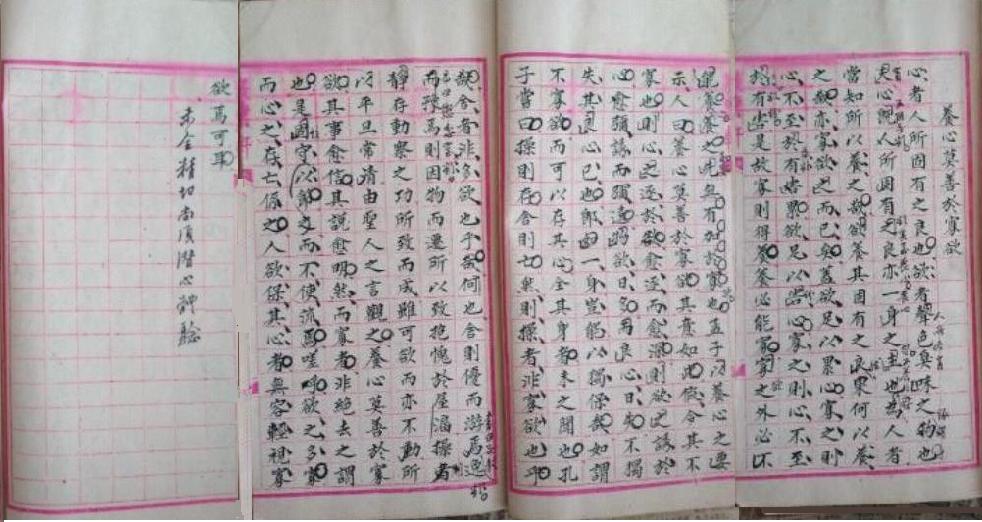 養心莫善於寡欲
心者人所固有之良也欲者聲色臭味之物也
良心既人所固有之良亦一身之主也為人者
當如所以養之哉欲養其固有之良果何以養
之哉亦寡欲之而已矣蓋欲足以累心寡之則
心不至於有嗜累欲足以害心寡之則心不至
於有害是故寡則得養養必能寡寡之外必不
見養養之外無有加於寡也孟子以養心之要
示人曰養心莫善於寡欲其意如此假令其不
寡也則心之逐於欲愈逐而愈深測欲之誘於
心愈彌誘而彌遠的欲日多而良心日失不獨
失其良心已也即由一身豈能以獨保哉如謂
不寡欲而可以存其心全其身者未之聞也孔
子嘗曰操則存舍則亡然則操者非寡欲也乎
哉舍者非多欲也乎哉何也舍則優而游焉
而豫焉則因物而遷所以致抱愧於屋漏操
靜存動察之功所致而成雖可欲而亦不動所
以平旦常清由聖人之言觀之養心莫善於寡
欲其事愈信其說愈明然而寡者非絕去之謂
也是固守以節之而不使流焉嗟呼欲之多寡
而心之存亡係之人欲保其心者無容輕視寡
欲焉可耳
未全精切尚須潛心神驗